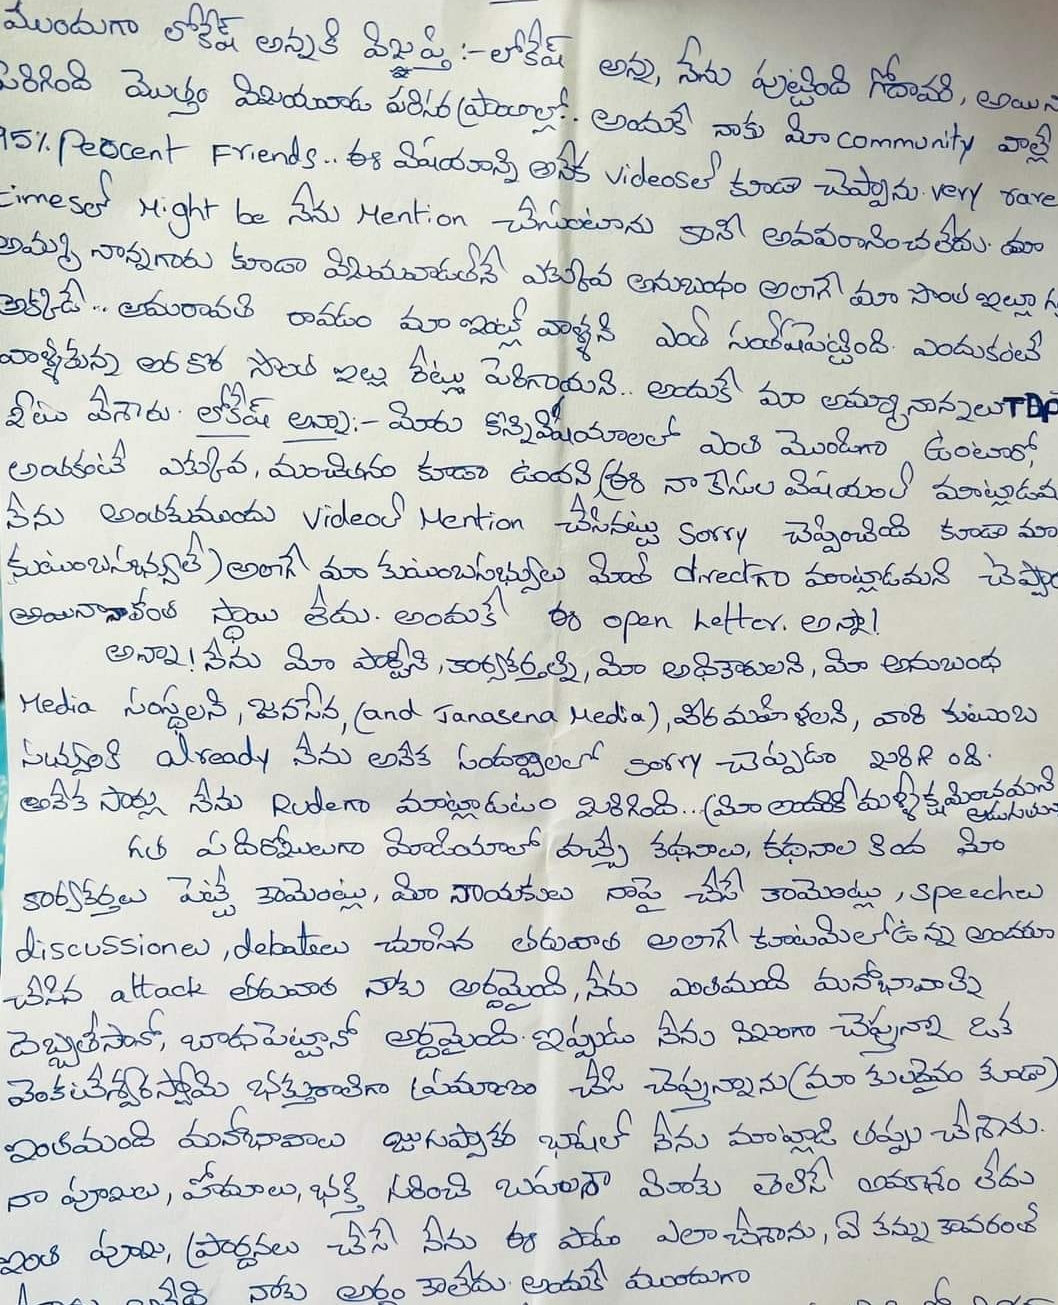 ముందుగా లోకేష్ అన్నకి విజ్ఞప్తి :- లోకేష్ అన్న, నేను పుట్టింది గోదావరి, అయిన
పెరిగింది మొత్తం విజయవాడ పరిసర ప్రాంతాల్లో.. అందుకే నాకు మీ community వాళ్లే
95% Peocent Friends.. ఈ విషయాన్ని అనేక videosలో కూడా చెప్పాను. very rare
timesలో Might be నేను Mention చేసుంటాను కానీ అవమానించలేదు. మా
అమ్మ నాన్నగారు కూడా విజయవాడతోనే ఎక్కువ అనుబంధం అలాగే మా సొంత ఇల్లూ
అక్కడే.. అమరావతి రావడం మా ఇంట్లో వాళ్ళని ఎంతో సంతోషపెట్టింది. ఎందుకంటే
వాళ్ళకున్న అరకొర సొంత ఇల్లు రేట్లు పెరిగాయని.. అందుకే మా అమ్మానాన్నలు TDP
కేటు వేశారు. లోకేష్ అన్నా:- మీరు కొన్ని విషయాలలో ఎంత మొండిగా ఉంటారో,
అంతకంటే ఎక్కువ, మంచితనం కూడా ఉందని (ఈ నా కేసుల విషయంలో మాట్లాడమ
నేను అంతకుముందు videoలో Mention చేసినట్టు sorry చెప్పించింది కూడా మా
కుటుంబసభ్యులతో) అలాగే మా కుటుంబసభ్యులు మీతో directగా మాట్లాడమని చెప్పా
అయినా నాకంత స్థాయి లేదు. అందుకే ఈ open Letter. అన్నా!
అన్నా! నేను మీ పార్టీని, కార్యకర్తల్ని, మీ అధికారులని, మీ అనుబంధ
Media సంస్థలని, జనసేన, (and Janasena Media), వీరమహిళలని, వారి కుటుంబ
సభ్యులకి already నేను అనేక సందర్భాలలో sorry చెప్పడం జరిగింది.
అనేక సార్లు నేను Rudeగా మాట్లాడటం జరిగింది...(మీ అందరికీ మళ్ళీ క్షమించమని
అడుగుతు
గత పదిరోజులుగా మీడియాలో వచ్చే కథనాలు, కథనాల కింద మీ
కార్యకర్తలు పెట్టే కామెంట్లు, మీ నాయకులు నాపై చేసే కామెంట్లు, speechలు
discussionలు, debateలు చూసిన తరువాత అలాగే కూటమిలో ఉన్న అందరూ
చేసిన attack తరువాత నాకు అర్థమైంది, నేను ఎంతమంది మనోభావాల్ని
దెబ్బతీసానో, బాధపెట్టానో అర్థమైంది. ఇప్పుడు నేను నిజంగా చెప్తున్నా ఒక
వెంకటేశ్వరస్వామి భక్తురాలిగా ప్రమాణం చేసి చెప్తున్నాను (మా కులదైవం కూడా)
ఇంతమంది మనోభావాలు జుగుప్సాకర భాషలో నేను మాట్లాడి తప్పు చేశాను.
నా పూజలు, హోమాలు, భక్తి గురించి బహుశా మీకు తెలిసే అవకాశం లేదు
ఇంత పూజ, ప్రార్థనలు చేసే నేను ఈ పాపం ఎలా చేశాను, ఏ కన్ను కావరంతో
నాకు అర్థం కాలేదు. అందుకే ముందుగా